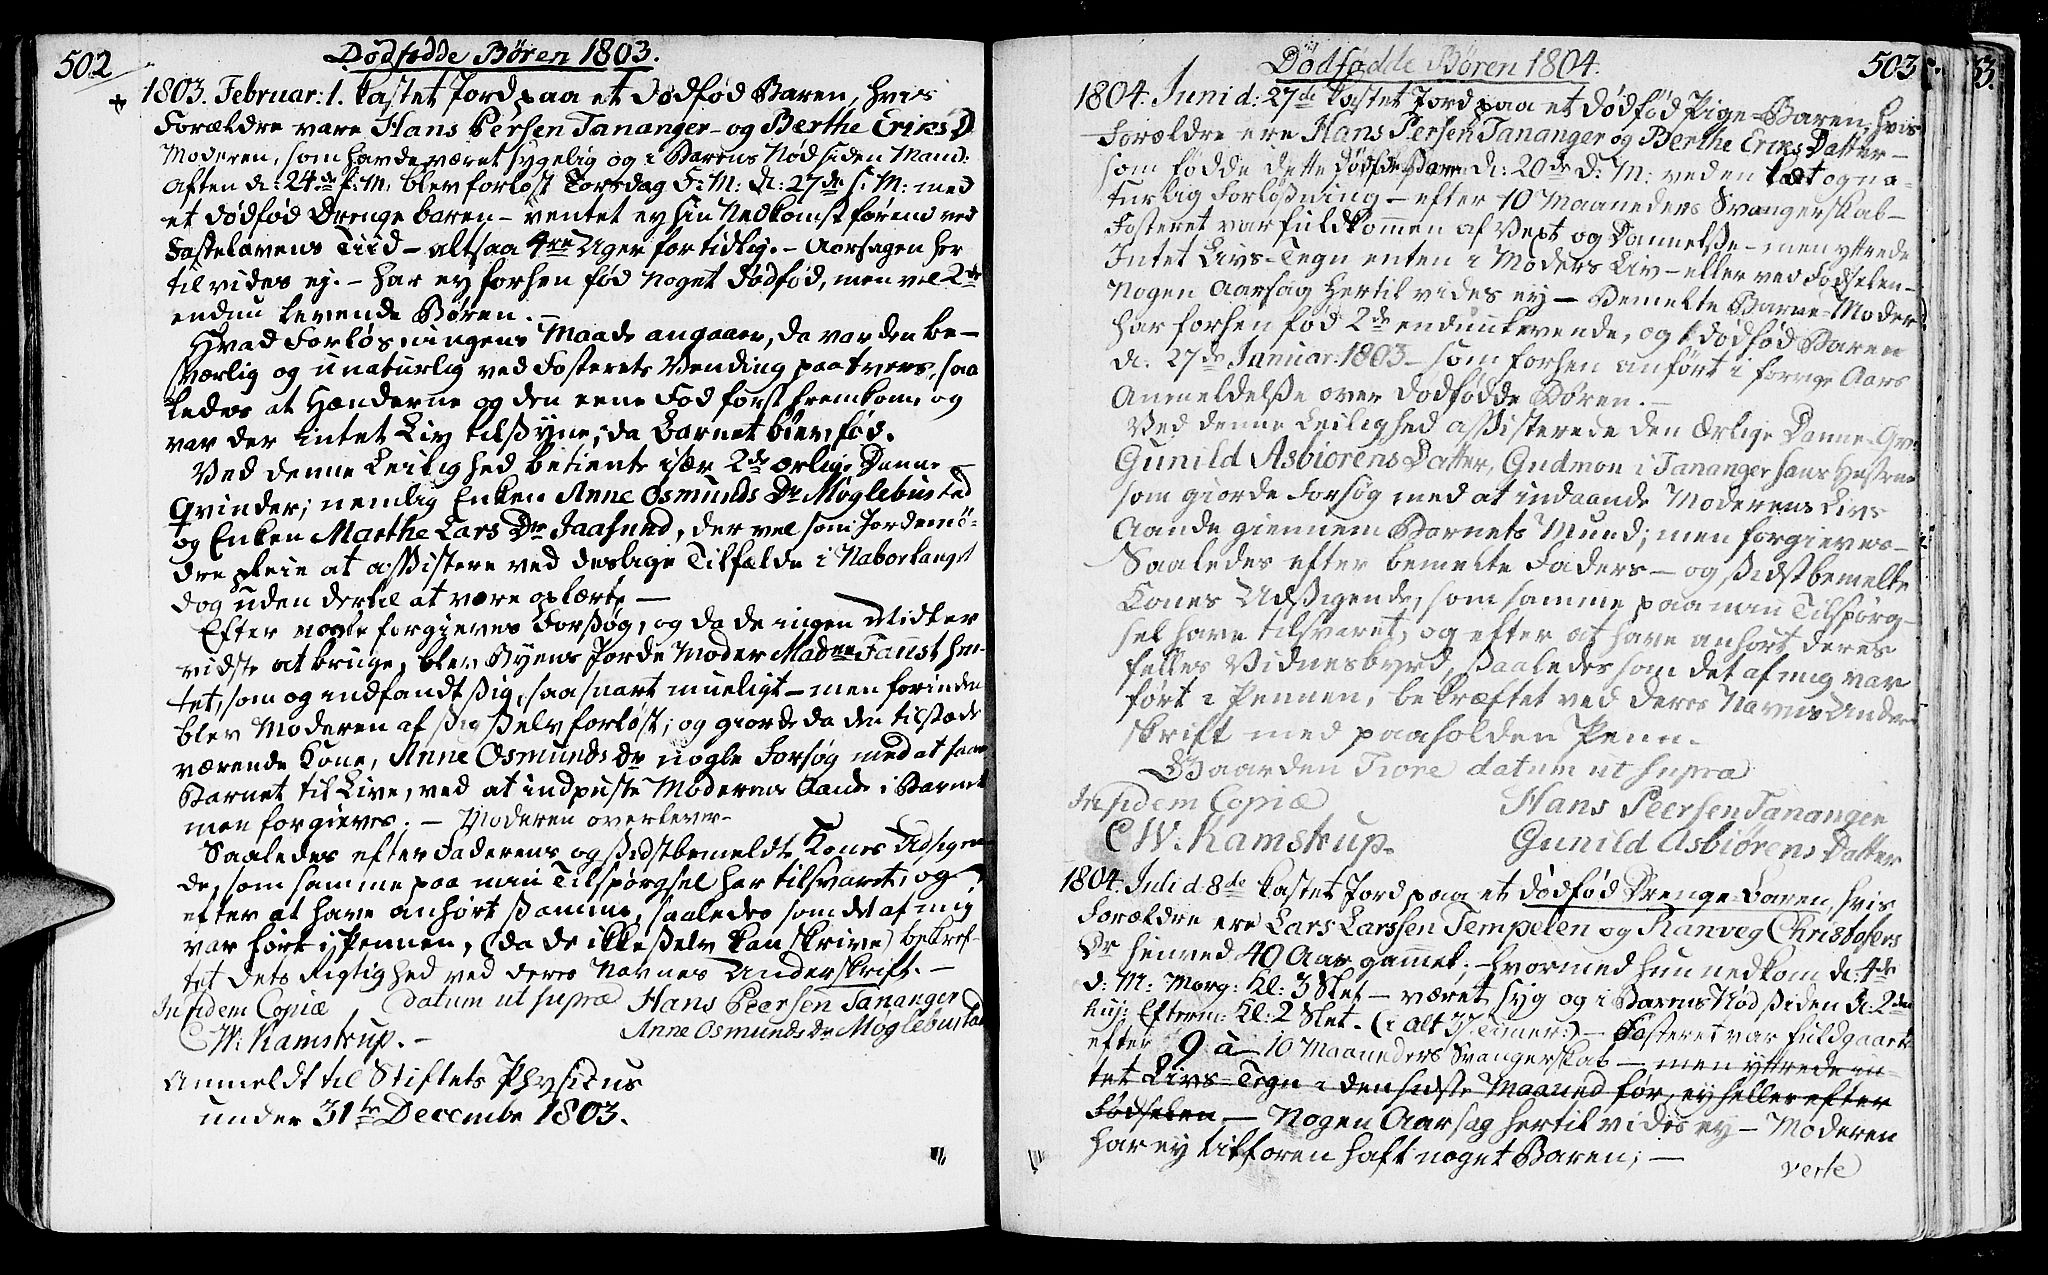 502
Dødfødde Børen 1803.
1803. Februar: 1. kastet Jord paa et dødfød Baren, hvis
Forældre vare Hans Persen Tananger - og Berthe Eriks D
Moderen, som havde været sygelig og i Barens Nød siden Mand:
Aften d: 24de f: M: blev forløst Torsdag F: M: d: 27de s: M: med
et dødfød Drenge baren - ventet ey sin Nedkomst førend ved
Fastelavens Tiid - altsaa 4re Uger for tidlig. - Aarsagen her
til vides ej. - har ey forhen fød noget dødfød, men vel 2de
endnu levende Børen. -
Hvad Forløsningens Maade angaaer, da var den be-
sværlig og unaturlig ved Fosterets Vending paa tvers, saa
ledes at Hænderne og den eene Fod først fremkom, og
var der intet Liv tilsyne, da Barnet blev fød.
Ved denne Leilighed betiente især 2de ærlige Danne
Qvinder; nemlig Enken Anne Osmunds Dr Møglebusted
og Enken Marthe Lars Dr Jaasund, der vel som Jordemø-
dre pleie at assistere ved deslige Tilfælde i Naborlauget
dog uden dertil at være oplærte -
Efter nogle forgieves Forsøg, og da de ingen Midler
vidste at bruge, blev Byens Jorde Moder Madme Faust hen-
tet, som og indfandt sig, saa snart mueligt - men forinden
blev Moderen af sig selv forløst; og giorde da den tilstæde
værende Kone, Anne Osmunds Dr nogle Forsøg med at faae
Barnet til Live, ved at indpuste Moderens Aande i Barnet
men forgieves. - Moderen overlever -
Saaledes efter Faderens og sidstbemeldte Kones Udsigen
de, som samme paa min Tilspørgsel har tilsvaret, og
efter at have anhørt samme, saaledes som det af mig
var ført i Pennen, (da de ikke selv kan skrive) bekræf-
tet dets Rigtighed ved deres Navnes Underskrift. -
In fidem Copiæ datum ut supra Hans Peersen Tananger
C W: Kamstrup. - Anne Osmunds Dr Møglebustad
Anmeldt til Stiftets Physicus
under 31te Decembr 1803.
Dødfødde Børen 1804.
503
1804. Juni d: 27de kastet Jord paa et dødfød Pige-Baren, hvis
Forældre ere Hans Persen Tananger og Berthe Eriks Datter -
som fødde dette dødfødde Baren d: 20de d: M: ved en læt og na-
turlig Forløsning - efter 10 Maaneders Svangerskab -
Fosteret var fuldkommen af Vext og Dannelse - men yttrede
Intet Livs-Tegn enten i Moders Liv - eller ved Fødselen -
Nogen Aarsag hertil vides ey - Bemelte Barne-Moder
har forhen fød 2de endnu levende, og 1 dødfød Baren
d. 27de Januar: 1803 - som forhen anført i forrige Aars
Anmeldelse over dødfødde Børen. -
Ved denne Leilighed assisterede den ærlige Danne-Qv:
Gunild Asbiorens Datter, Gudmon i Tananger hans Hustrue
som giorde Forsøg med at indaande Moderens Livs
Aande giennem Barnets Mund; men forgieves -
Saaledes efter bemelte Faders - og sidstbemelte
Kones Udsigende, som samme paa min Tilspørg-
sel have tilsvaret, og efter at have anhørt deres
felles Vidnesbyrd, saaledes som det af mig var
ført i Pennen, bekræftet ved deres Navnes Under
skrift med paaholden Penn.
Gaarden Tiore datum ut supra
In fidem Copiæ Hans Peersen Tananger
C W. Kamstrup. Gunild Asbiørens Datter
1804. Juli d. 8de kastet Jord paa et dødfød Drenge-Baren, hvis
Forældre ere Lars Larssen Tempelen og Ranveg Christofers
Dr henved 40 Aar gammel; - hvormed hun nedkom d: 4de
d: M: Morg: Kl: 3 Slet - været syg og i Barens Nød siden d: 2den
Efterm: Kl: 2 Slet. (i alt 37 Timer:) - Fosteret var fuldgaaet
efter 9 à 10 Maaneders Svangerskab - men yttrede in
tet Livs-Tegn i den sidste Maaned før, ey heller efter
Fødselen - Nogen Aarsag hertil vides ey - Moderen
har ey tilforen haft noget Baren; -
verte